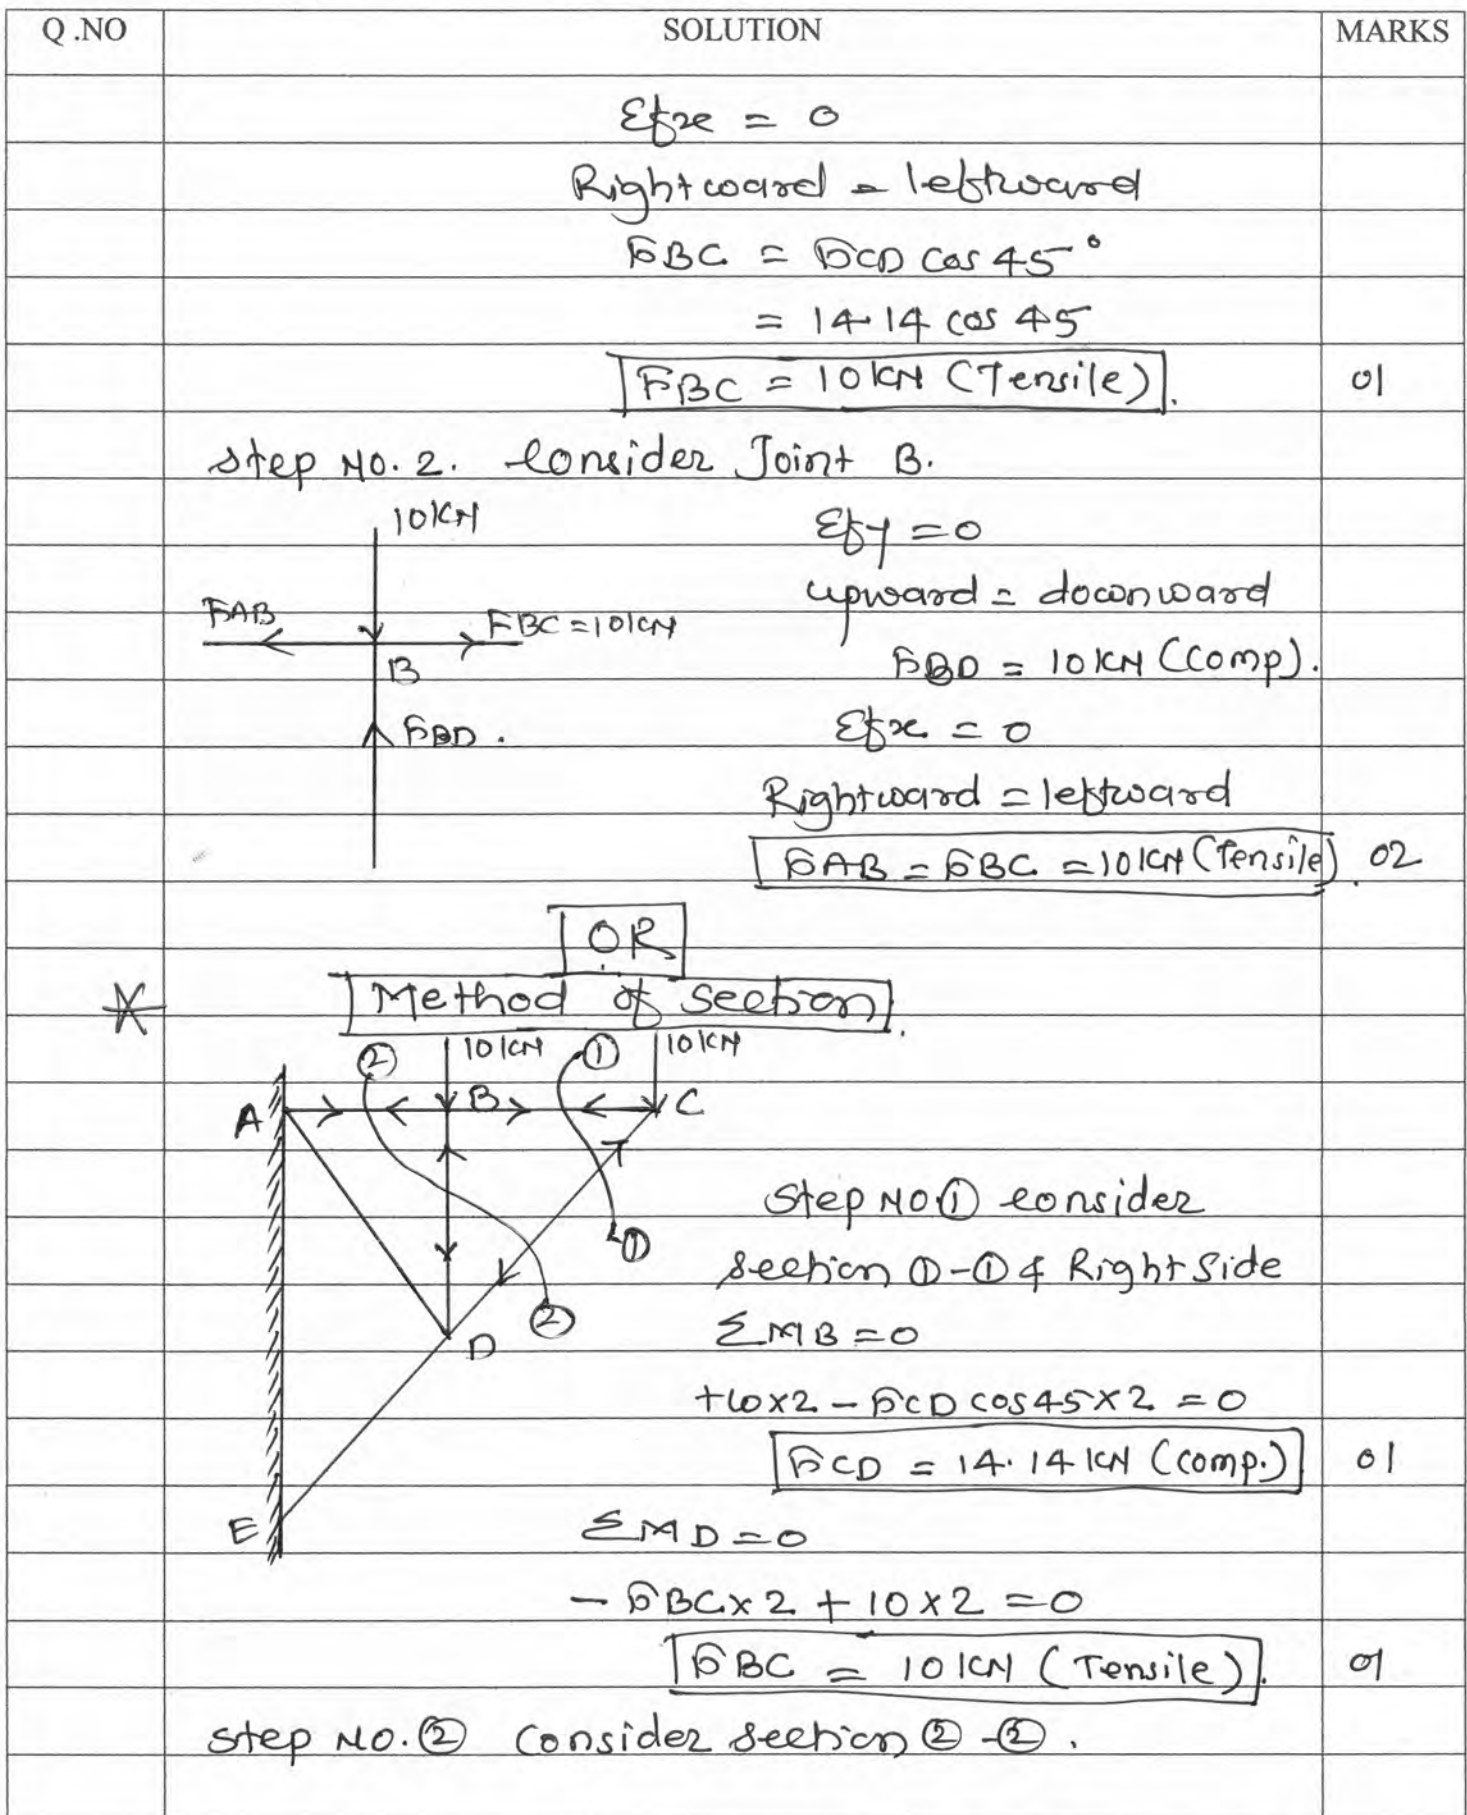 Q.NO SOLUTION MARKS
Σfx = 0
Rightward = leftward
FBC = FCD cos 45°
= 14.14 cos 45
FBC = 10 KN (Tensile). 01
Step No. 2. Consider Joint B.
10 KN
Σfy = 0
upward = downward
FAB FBC = 10 KN
B
FBD = 10 KN (Comp).
FBD.
Σfx = 0
Rightward = leftward
FAB = FBC = 10 KN (Tensile). 02
OR
* Method of section.
② 10 KN ① 10 KN
A B C
Step No ① consider
①
section ①-① & Right Side
②
D
ΣMB = 0
+10×2 - FCD cos 45×2 = 0
FCD = 14.14 KN (comp.) 01
E
ΣMD = 0
- FBC×2 + 10×2 = 0
FBC = 10 KN (Tensile). 01
Step No. ② Consider section ②-②.